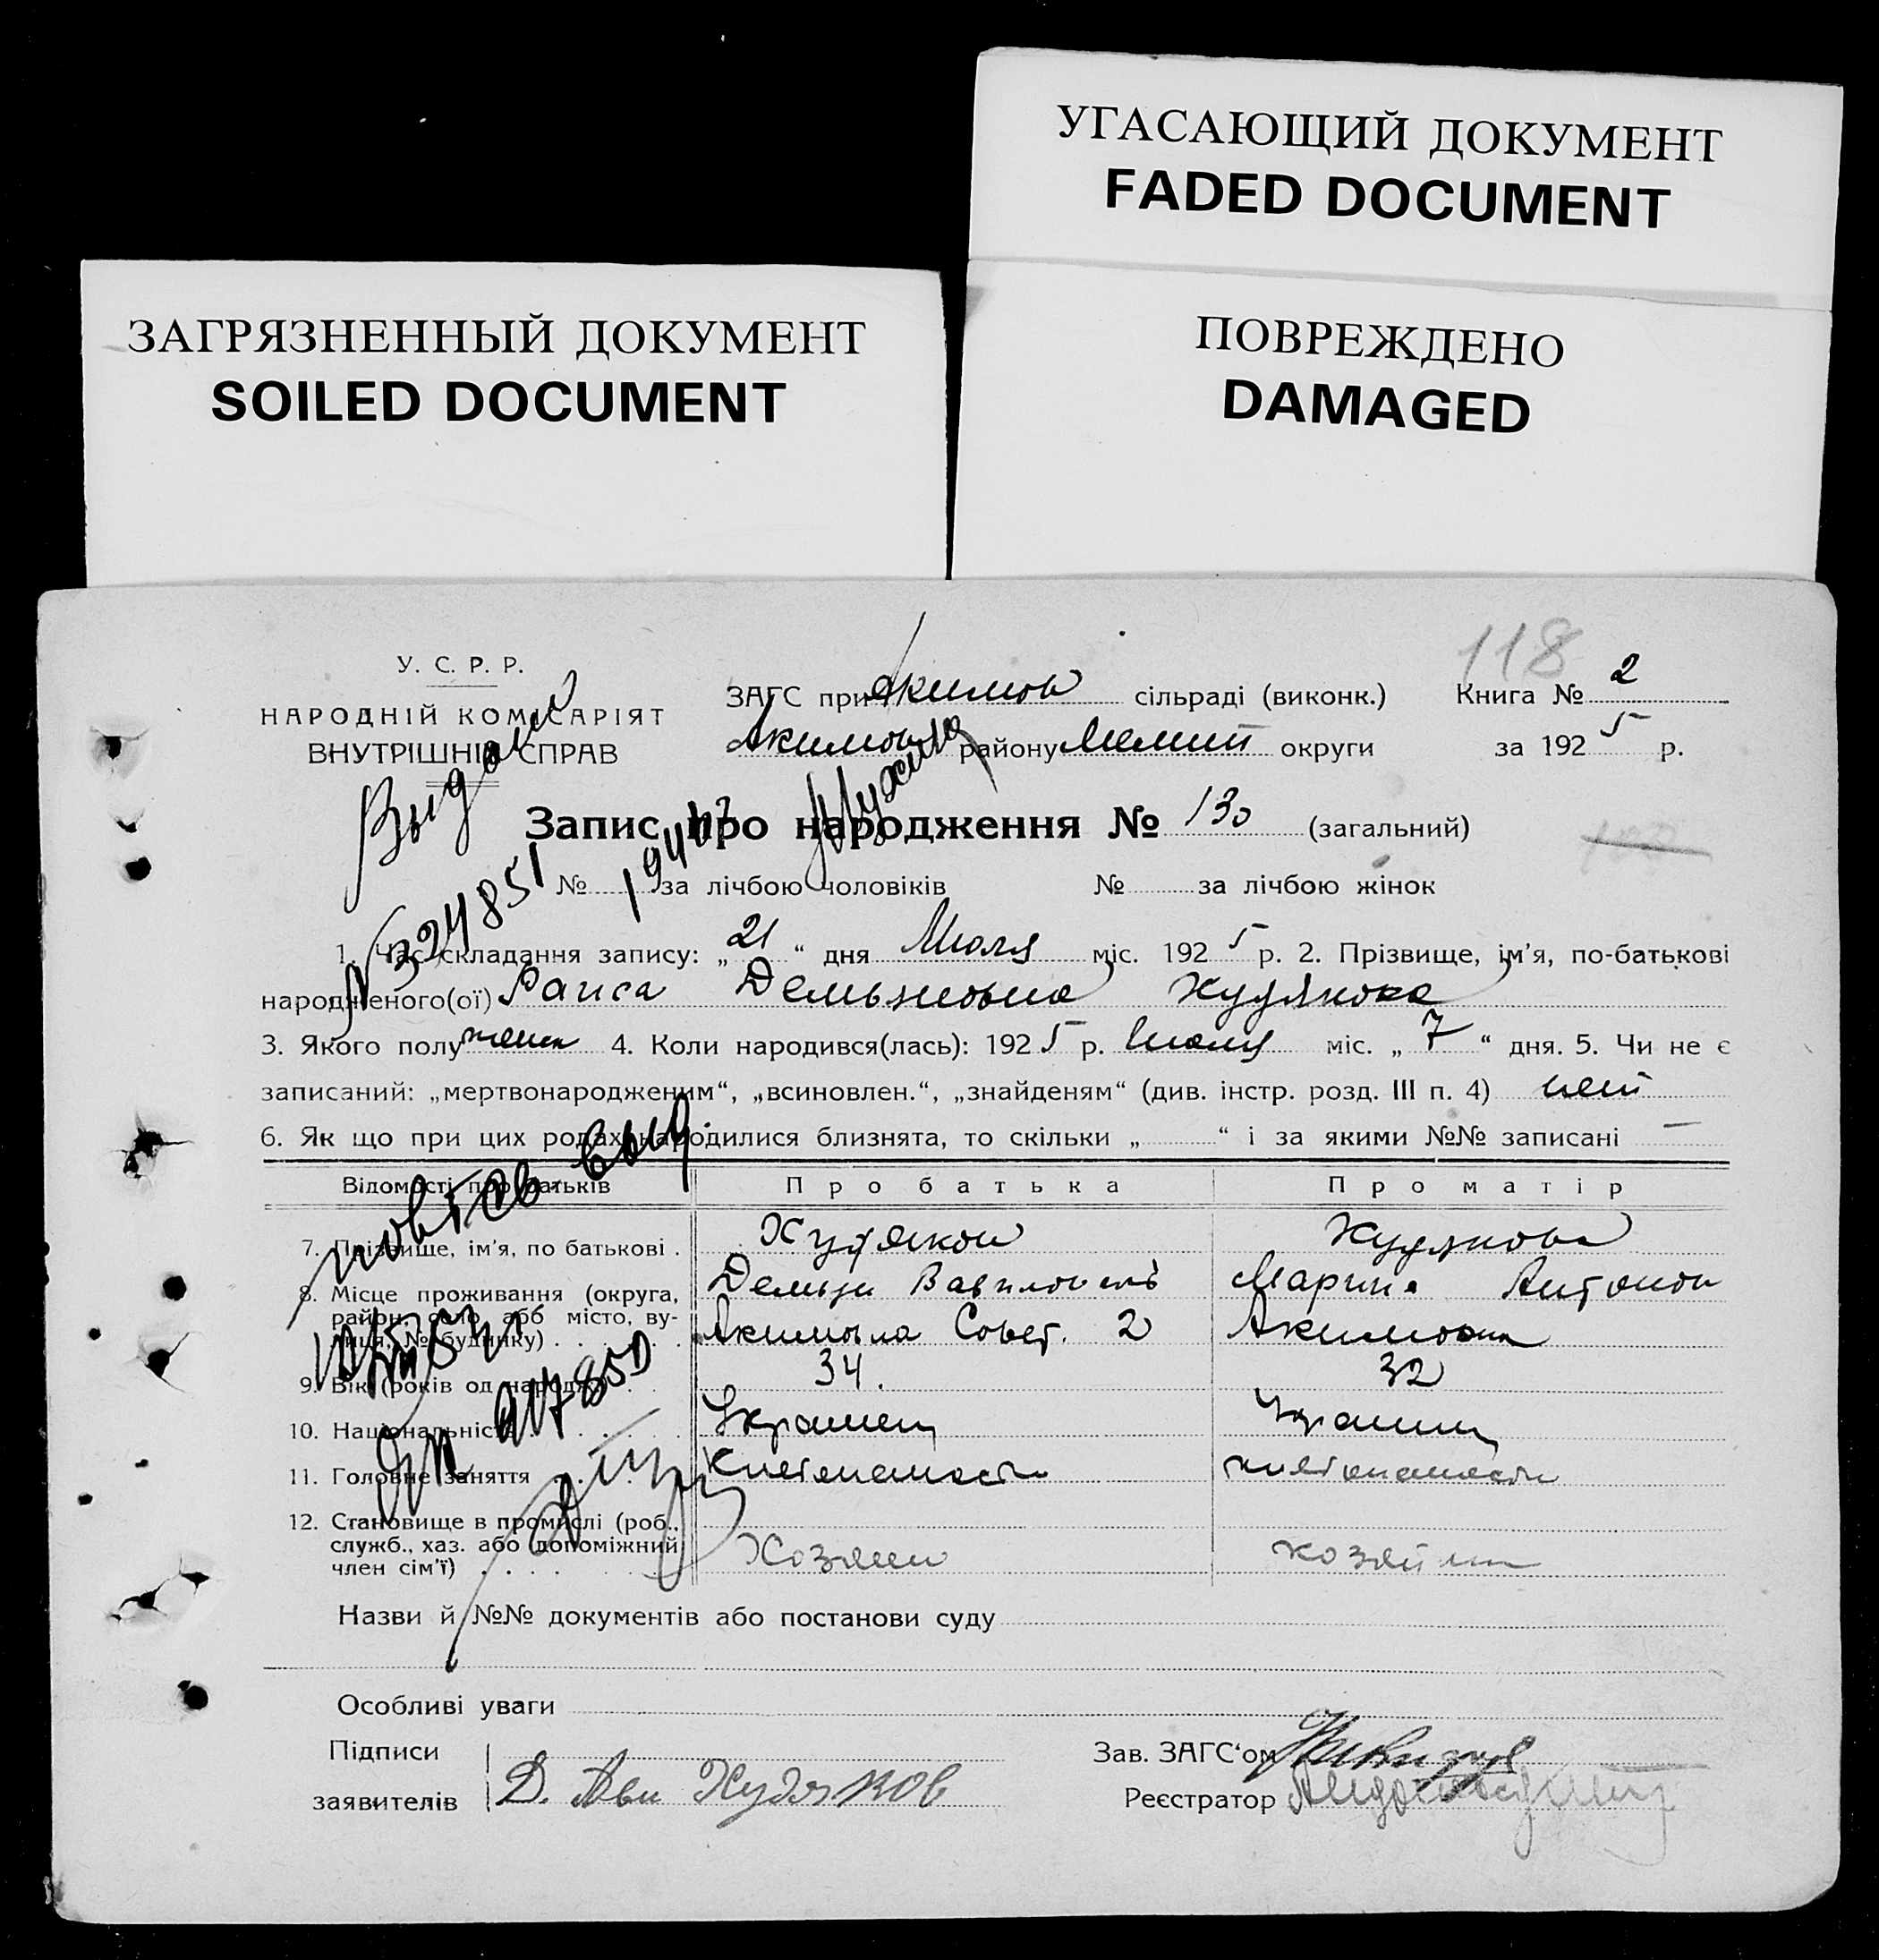 УГАСАЮЩИЙ ДОКУМЕНТ
FADED DOCUMENT
ЗАГРЯЗНЕННЫЙ ДОКУМЕНТ
SOILED DOCUMENT
ПОВРЕЖДЕНО
DAMAGED
118
У. С. Р. Р.
НАРОДНІЙ КОМІСАРІЯТ
ВНУТРІШНІХ СПРАВ
ЗАГС при Акимов сільраді (виконк.) Книга № 2
району округи за 1925 р.
Запис про народження № 130 (загальний)
№ за лічбою чоловіків № за лічбою жінок
№ 324851
1. Час складання запису: „21“ дня Июля міс. 1925 р. 2. Прізвище, ім'я, по-батькові
народженого(ої) Раиса Демьяновна Худякова
3. Якого полу женск 4. Коли народився(лась): 1925 р. Июля міс. „7“ дня. 5. Чи не є
записаний: „мертвонародженим“, „всиновлен.“, „знайденям“ (див. інстр. розд. III п. 4) нет
6. Як що при цих родах народилися близнята, то скільки „ “ і за якими №№ записані —
Відомості про батьків Про батька Про матір
7. Прізвище, ім'я, по батькові . Худяков Худякова
Демьян Вавилович Мария Антонов
8. Місце проживання (округа, район, село або місто, вулиця, № будинку) . . . Акимовка Совет. 2 Акимовка
9. Вік (років од народж.) . . 34. 32
10. Національність . . . Украинец
11. Головне заняття . . .
12. Становище в промислі (роб., служб., хаз. або допоміжний член сім'ї) . . . . Хозяин хозяин
Назви й №№ документів або постанови суду
Особливі уваги
Підписи
заявителів Д. Худяков
Зав. ЗАГС'ом
Реєстратор